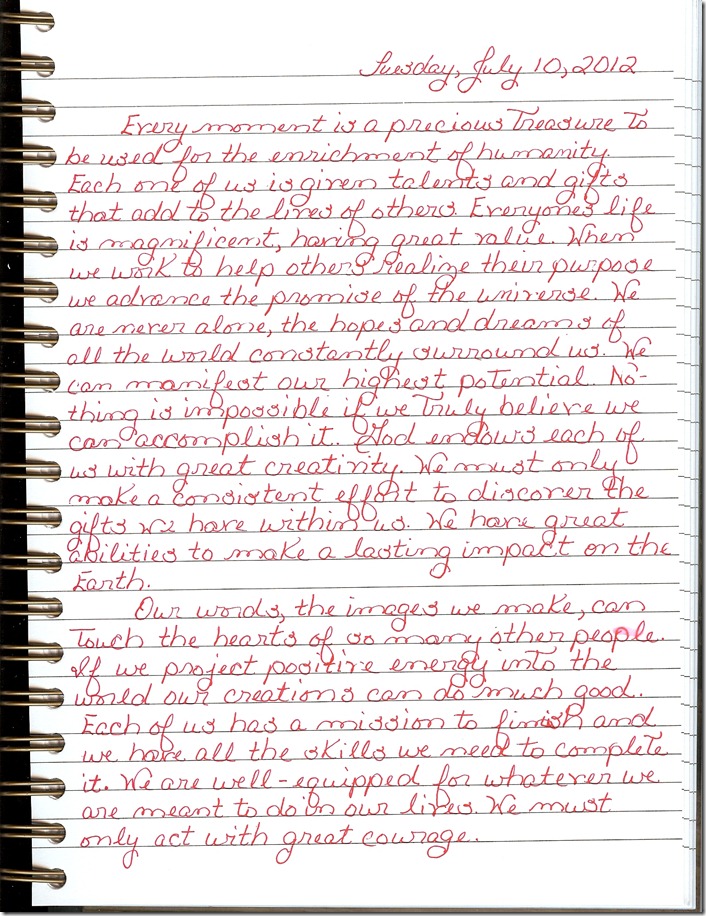 Tuesday, July 10, 2012
Every moment is a precious Treasure To
be used for the enrichment of humanity.
Each one of us is given talents and gifts
that add to the lives of others. Everyone's life
is magnificent, having great value. When
we work to help others realize their purpose
we advance the promise of the universe. We
are never alone, the hopes and dreams of
all the world constantly surround us. We
can manifest our highest potential. No-
thing is impossible if we Truly believe we
can accomplish it. God endows each of
us with great creativity. We must only
make a consistent effort to discover the
gifts we have within us. We have great
abilities to make a lasting impact on the
Earth.
Our words, the images we make, can
Touch the hearts of so many other people.
If we project positive energy into the
world our creations can do much good.
Each of us has a mission to finish and
we have all the skills we need to complete
it. We are well-equipped for whatever we
are meant to do in our lives. We must
only act with great courage.